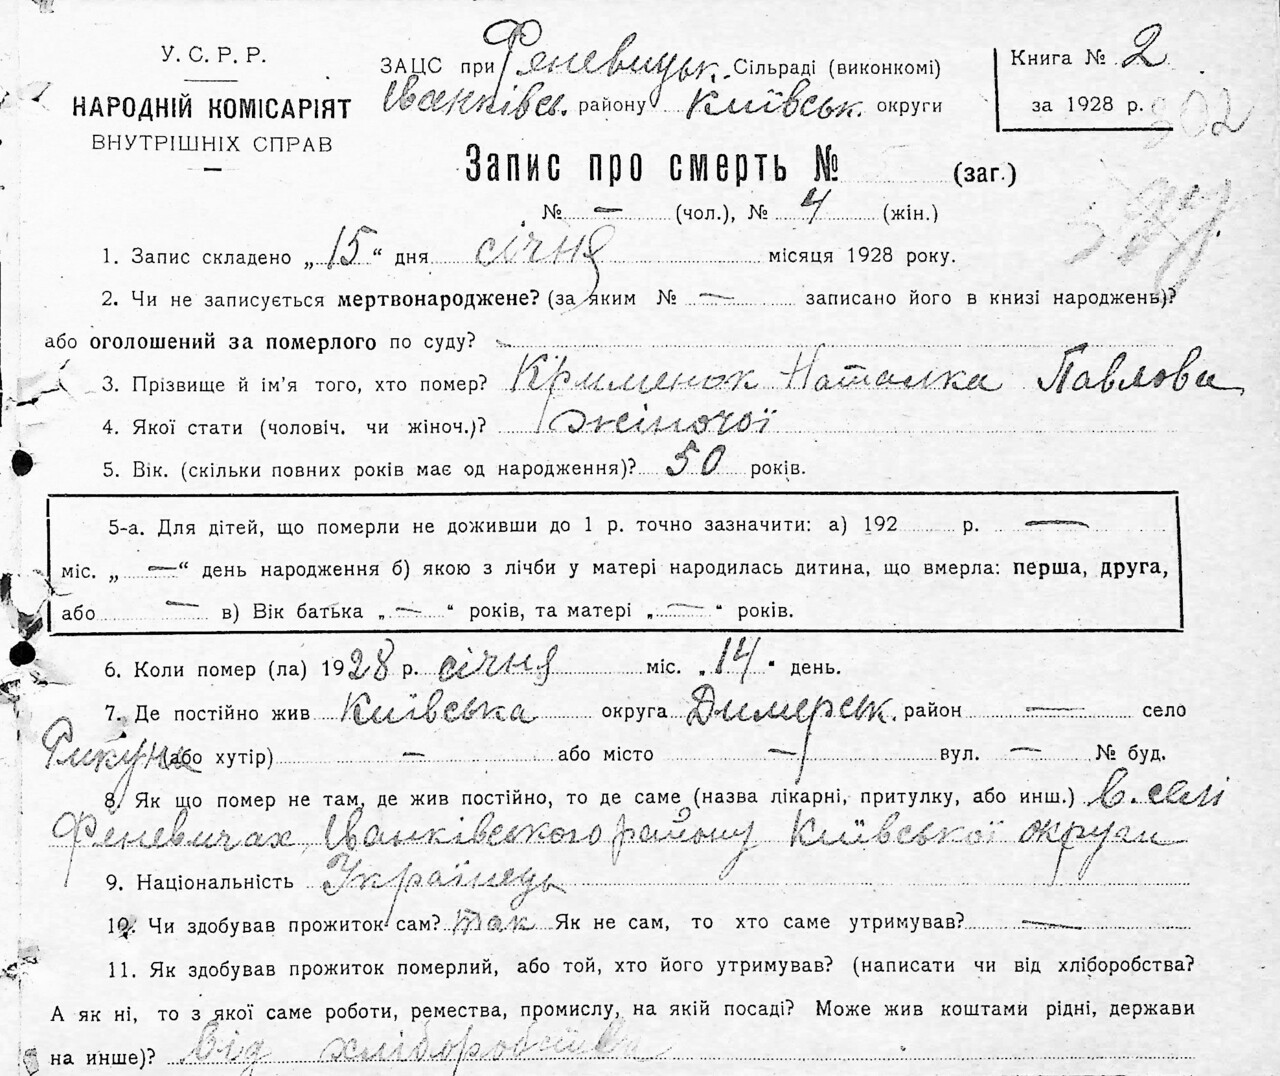 У. С. Р. Р.
НАРОДНІЙ КОМІСАРІЯТ
ВНУТРІШНІХ СПРАВ
ЗАЦС при Феневицьк. Сільраді (виконкомі)
Іванківс. району Київськ. округи
Книга № 2
за 1928 р.
302
Запис про смерть № (заг.)
№ — (чол.), № 4 (жін.)
1. Запис складено „15“ дня січня місяця 1928 року.
2. Чи не записується мертвонароджене? (за яким № — записано його в книзі народжень)?
або оголошений за померлого по суду?
3. Прізвище й ім’я того, хто помер? Крименок Наталка Павлова
4. Якої стати (чоловіч. чи жіноч.)? жіночої
5. Вік. (скільки повних років має од народження)? 50 років.
5-а. Для дітей, що померли не доживши до 1 р. точно зазначити: а) 192 р. —
міс. „ — “ день народження б) якою з лічби у матері народилась дитина, що вмерла: перша, друга,
або — в) Вік батька „ — “ років, та матері „ — “ років.
6. Коли помер (ла) 1928 р. січня міс. „14“ день.
7. Де постійно жив Київська округа Димерськ. район — село
Рикунь (або хутір) — або місто — вул. — № буд.
8. Як що помер не там, де жив постійно, то де саме (назва лікарні, притулку, або инш.) в селі
Феневичах, Іванківського району Київської округи
9. Національність Українець
10. Чи здобував прожиток сам? так Як не сам, то хто саме утримував? —
11. Як здобував прожиток померлий, або той, хто його утримував? (написати чи від хліборобства?
А як ні, то з якої саме роботи, ремества, промислу, на якій посаді? Може жив коштами рідні, держави
на инше)? Від хліборобства